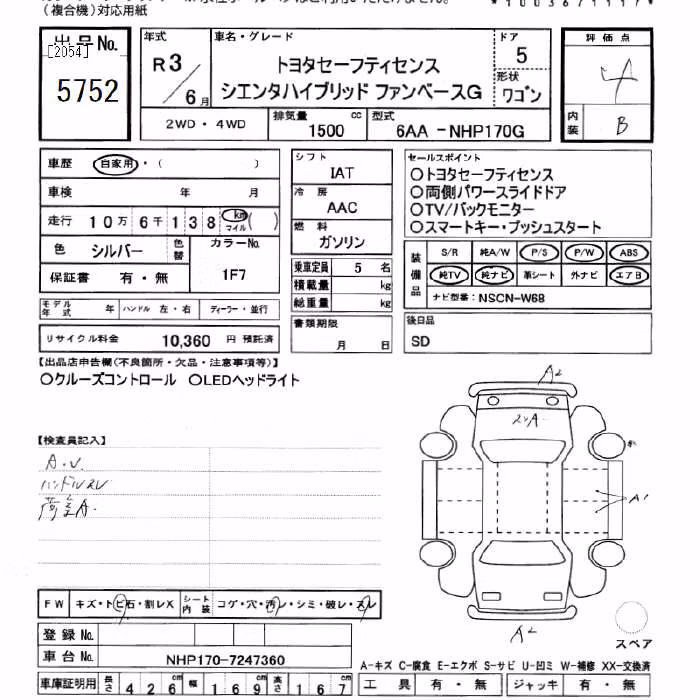 (複合機)対応用紙
出品No.
[2054]
5752
年式
R3/6月
車名・グレード
トヨタセーフティセンス
シエンタハイブリッド ファンベースG
ドア
5
形状
ワゴン
評価点
4
内装
B
2WD・4WD
排気量
1500 cc
型式
6AA-NHP170G
車歴 自家用・( )
車検 年 月
走行 10万6千138 km マイル ( )
色 シルバー 色替
カラーNo.
1F7
保証書 有・無
モデル年式 年 ハンドル 左・右 ディーラー・並行
リサイクル料金 10,360 円 預託済
シフト
IAT
冷房
AAC
燃料
ガソリン
乗車定員 5 名
積載量 kg
総重量 kg
書類期限
月 日
セールスポイント
○トヨタセーフティセンス
○両側パワースライドドア
○TV/バックモニター
○スマートキー・プッシュスタート
装備品
S/R 純A/W P/S P/W ABS
純TV 純ナビ 革シート 外ナビ エアB
ナビ型番: NSCN-W68
後日品
SD
【出品店申告欄(不良箇所・欠品・注意事項等)】
○クルーズコントロール ○LEDヘッドライト
【検査員記入】
ハンドルスレ
A2
A
A1
A2
スペア
FW キズ・トビ石・割レX シート内装 コゲ・穴・汚レ・シミ・破レ・スレ
登録No.
車台No. NHP170-7247360
車庫証明用 長さ 426cm 幅 169cm 高さ 167
A-キズ C-腐食 E-エクボ S-サビ U-凹ミ W-補修 XX-交換済
工具 有・無 ジャッキ 有・無